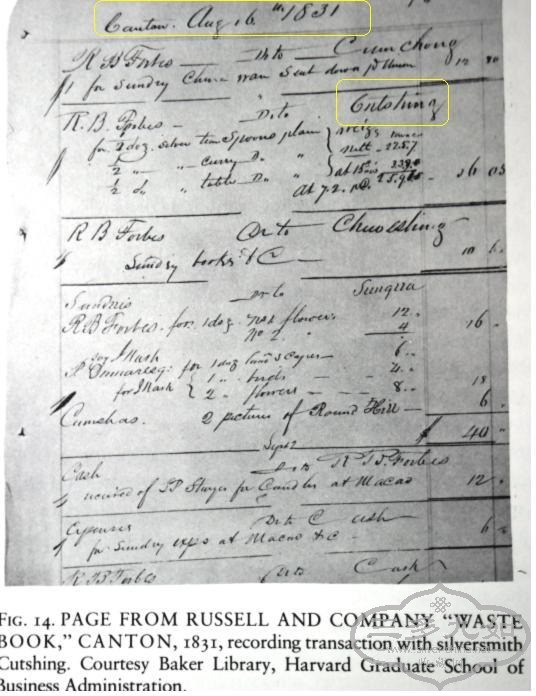 Canton. Aug 16th 1831
R B Forbes Dr to Cumchong
for Sundry China ware Sent down p 12 80
R. B. Forbes Dr to Cutshing
for ½ doz. silver tea Spoons plain } weigg
½ " " curry Do " nett 225.7
½ do " table Do " at 15 338
At 7.2. 16 03
R B Forbes Dr to
Sundry books & C 10
Sundries Dr to Sunqua
R B Forbes. for 1 doz. flowers 12 .
No 2. " 4 16 .
for 1 doz land s capes 6 ..
for J Nash { 1 " birds 4 ..
2 " flowers 8 .. 18
Cumshas. 2 pictures of Round Hill 6 .
$ 40
Sept 2
Cash Dr to R B Forbes
received of for Candles at Macao 12 .
Expenses Dr to Cash
for Sundry exps at Macao & c 6
R B Forbes Dr to Cash
FIG. 14. PAGE FROM RUSSELL AND COMPANY "WASTE
BOOK," CANTON, 1831, recording transaction with silversmith
Cutshing. Courtesy Baker Library, Harvard Graduate School of
Business Administration.